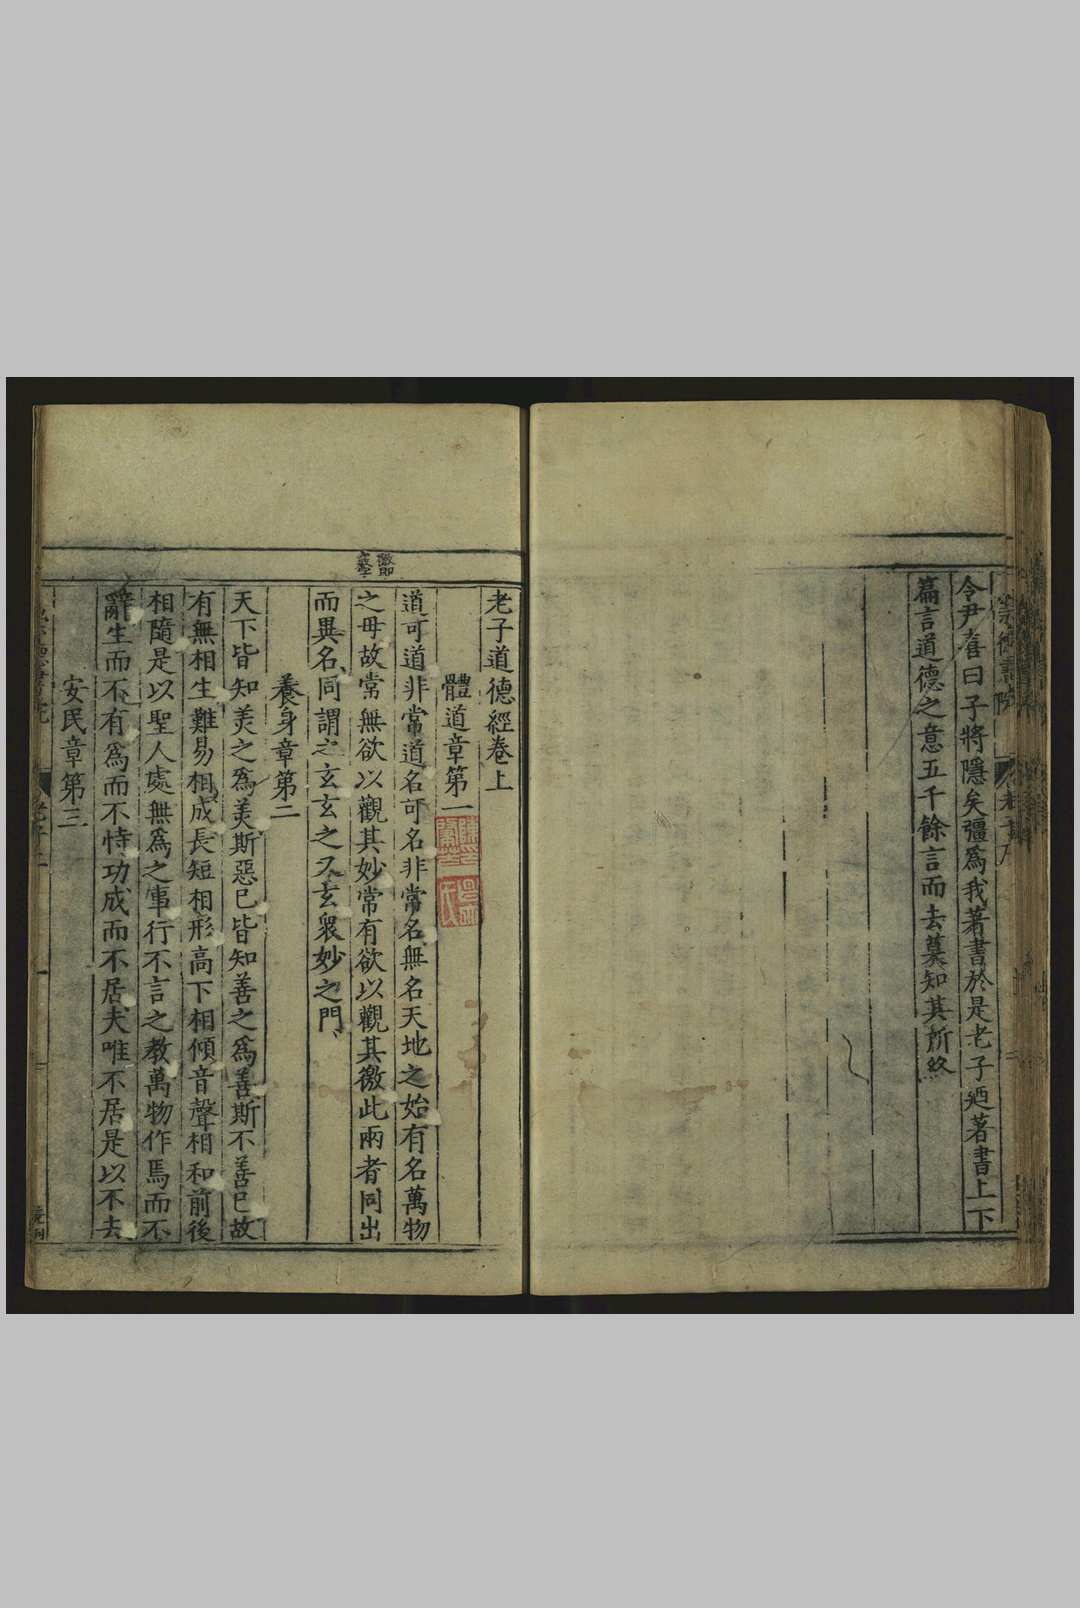 崇德書院
令尹喜曰子將隱矣彊爲我著書於是老子迺著書上下
篇言道德之意五千餘言而去莫知其所終
徼即
竅字
老子道德經卷上
體道章第一
道可道非常道名可名非常名無名天地之始有名萬物
之母故常無欲以觀其妙常有欲以觀其徼此兩者同出
而異名同謂之玄玄之又玄衆妙之門
養身章第二
天下皆知美之爲美斯惡已皆知善之爲善斯不善已故
有無相生難易相成長短相形高下相傾音聲相和前後
相隨是以聖人處無爲之事行不言之教萬物作焉而不
辭生而不有爲而不恃功成而不居夫唯不居是以不去
安民章第三